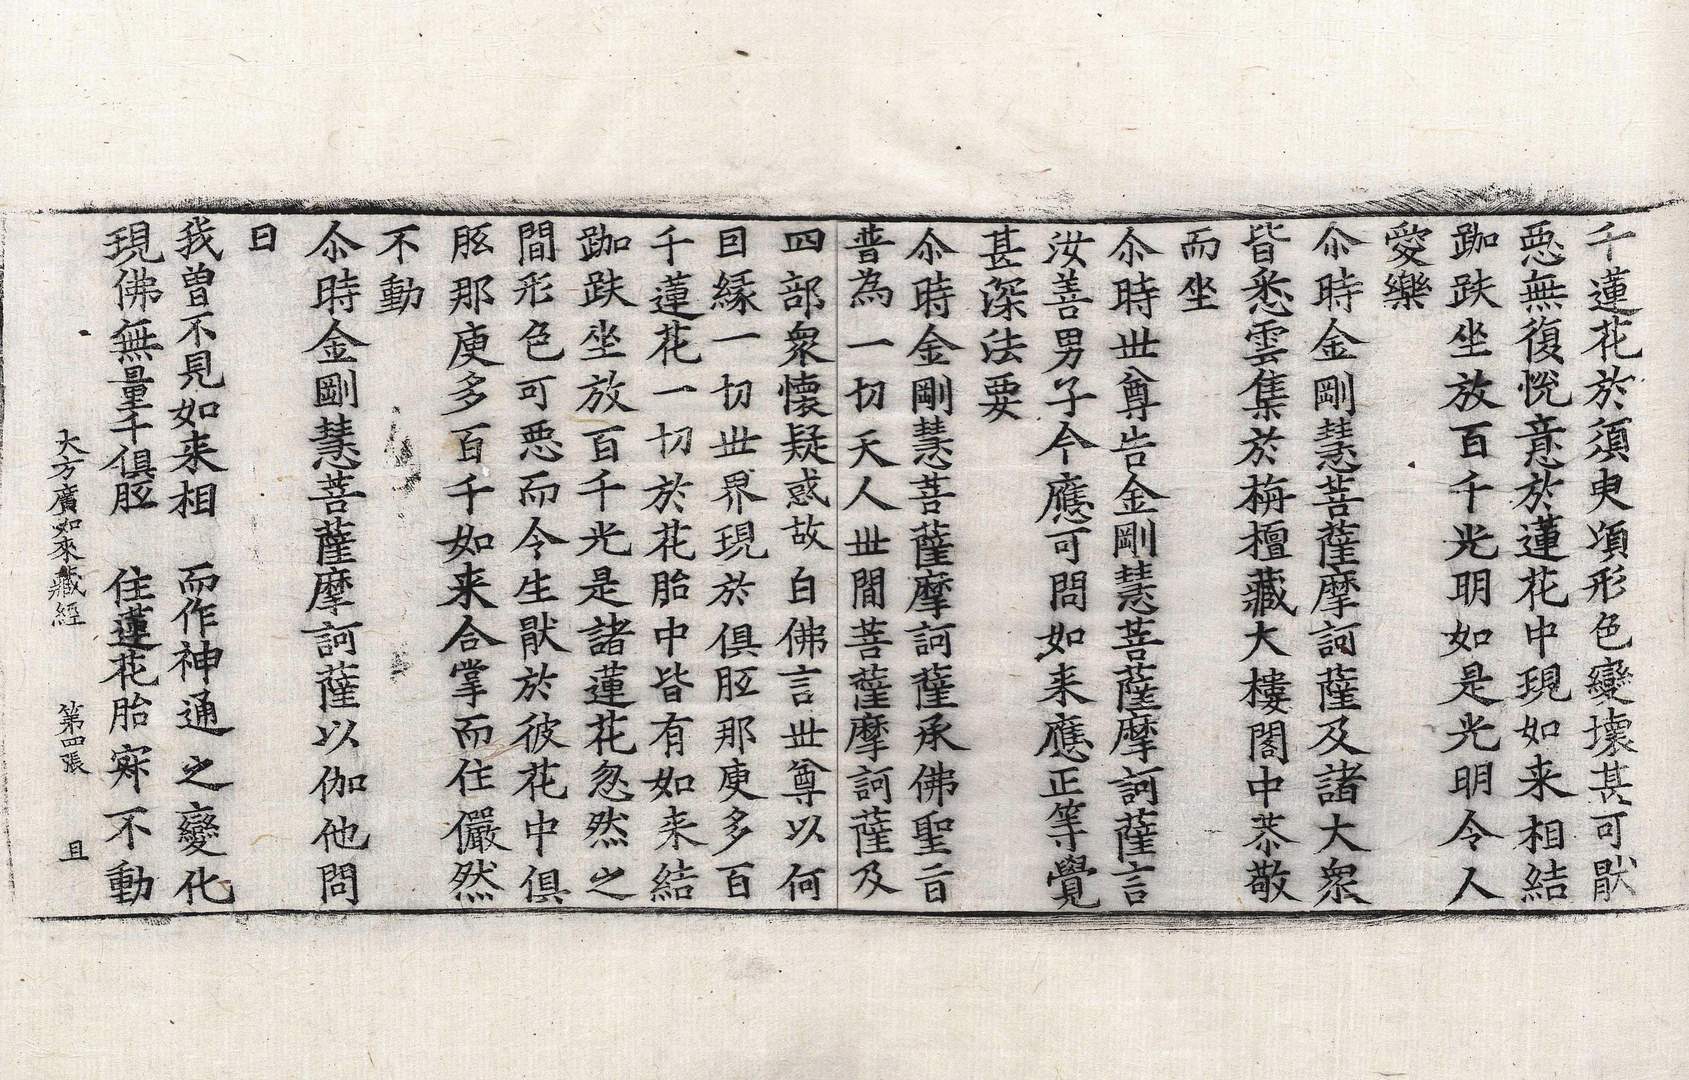 千蓮花於須臾頃形色變壞甚可猒
惡無復悅意於蓮花中現如来相結
跏趺坐放百千光明如是光明令人
愛樂
尒時金剛慧菩薩摩訶薩及諸大衆
皆悉雲集於栴檀藏大樓閣中恭敬
而坐
尒時世尊告金剛慧菩薩摩訶薩言
汝善男子今應可問如来應正等覺
甚深法要
尒時金剛慧菩薩摩訶薩承佛聖旨
普為一切天人世間菩薩摩訶薩及
四部衆懷疑惑故白佛言世尊以何
因緣一切世界現於俱胝那庾多百
千蓮花一切於花胎中皆有如来結
跏趺坐放百千光是諸蓮花忽然之
間形色可惡而令生猒於彼花中俱
胝那庾多百千如来合掌而住儼然
不動
尒時金剛慧菩薩摩訶薩以伽他問
曰
我曾不見如来相　而作神通之變化
現佛無量千俱胝　住蓮花胎寂不動
大方廣如來藏經　第四張　且